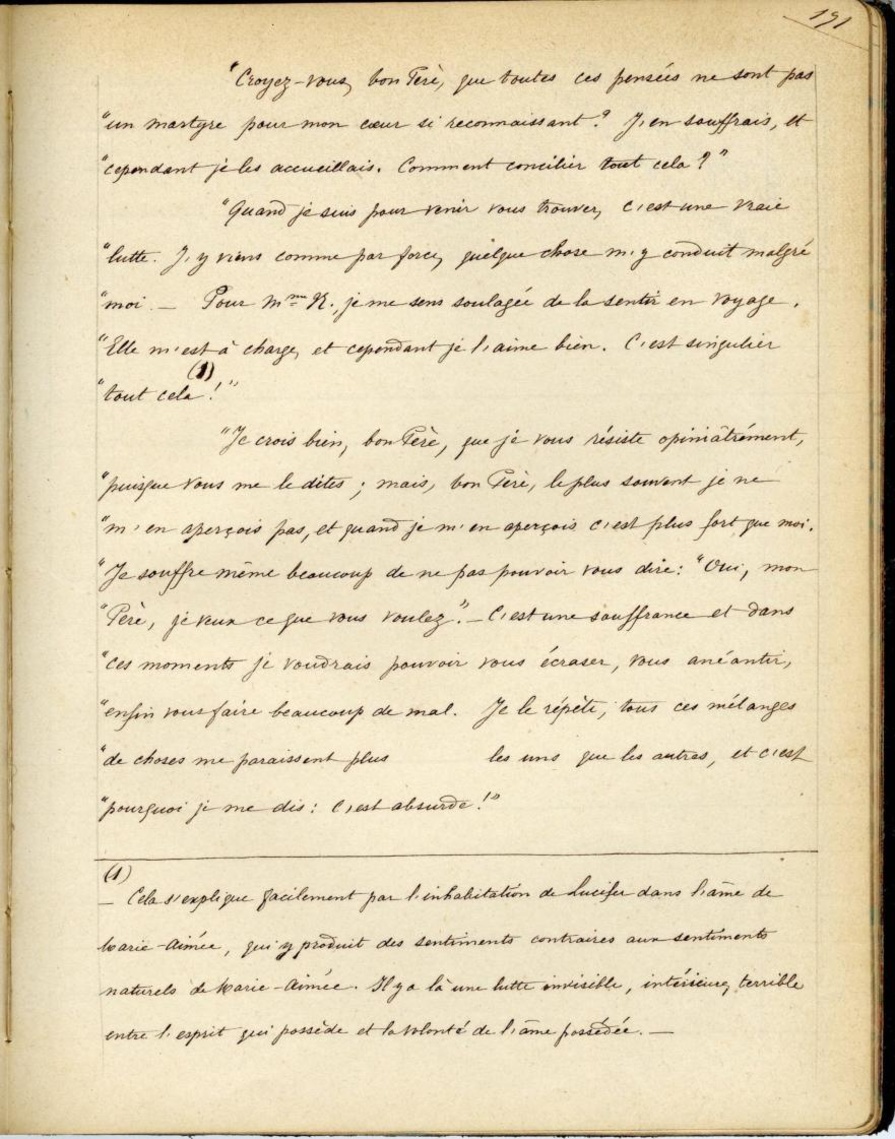 191
"Croyez-vous, bon Père, que toutes ces pensées ne sont pas
"un martyre pour mon cœur si reconnaissant? J'en souffrais, et
"cependant je les accueillais. Comment concilier tout cela?"
"Quand je suis pour venir vous trouver, c'est une vraie
"lutte. J'y viens comme par force, quelque chose m'y conduit malgré
"moi. — Pour Mme K., je me sens soulagée de la sentir en voyage.
"Elle m'est à charge, et cependant je l'aime bien. C'est singulier
"tout cela (1)!"
"Je crois bien, bon Père, que je vous résiste opiniâtrément,
"puisque vous me le dites; mais, bon Père, le plus souvent je ne
"m'en aperçois pas, et quand je m'en aperçois c'est plus fort que moi.
"Je souffre même beaucoup de ne pas pouvoir vous dire: "Oui, mon
"Père, je veux ce que vous voulez". — C'est une souffrance et dans
"ces moments je voudrais pouvoir vous écraser, vous anéantir,
"enfin vous faire beaucoup de mal. Je le répète, tous ces mélanges
"de choses me paraissent plus les uns que les autres, et c'est
"pourquoi je me dis: C'est absurde!"
(1)
— Cela s'explique facilement par l'inhabitation de Lucifer dans l'âme de
Marie-Aimée, qui y produit des sentiments contraires aux sentiments
naturels de Marie-Aimée. Il y a là une lutte invisible, intérieure, terrible
entre l'esprit qui possède et la volonté de l'âme possédée. —